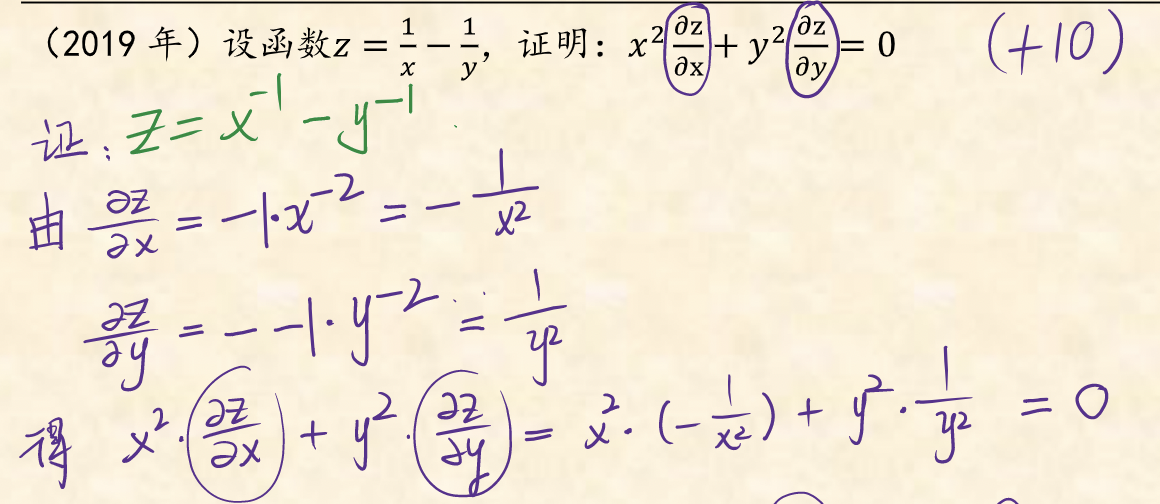 （2019 年）设函数z = 1/x − 1/y，证明：x²∂z/∂x + y²∂z/∂y = 0 (+10)
证：z = x⁻¹ − y⁻¹
由 ∂z/∂x = −1·x⁻² = − 1/x²
∂z/∂y = − −1·y⁻² = 1/y²
得 x²·∂z/∂x + y²·∂z/∂y = x²·(−1/x²) + y²·1/y² = 0